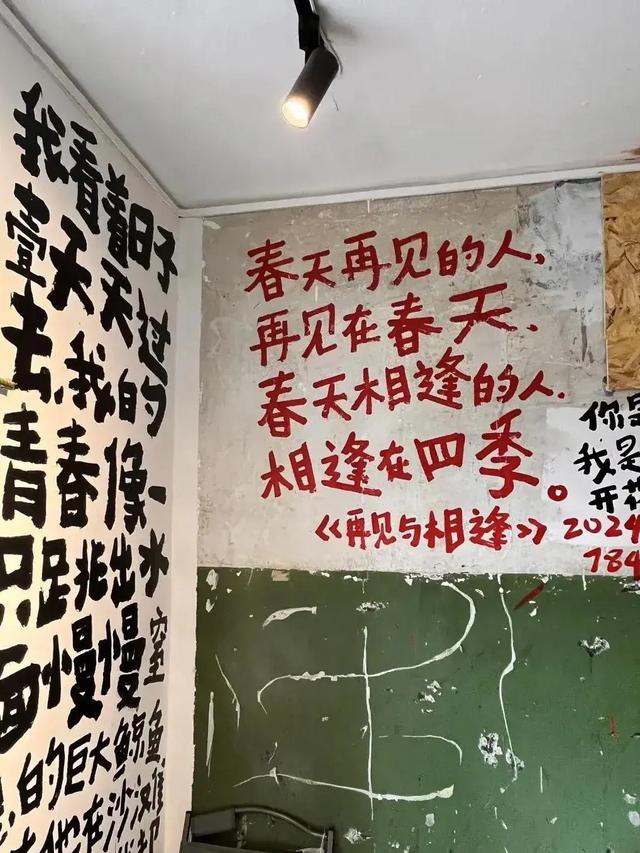 我看着日子
壹天天过
去,我的
青春像一
只足兆出水
面慢慢窒
的巨大鲸鱼
他在沙漠
春天再见的人,
再见在春天、
春天相逢的人.
相逢在四季。
《再见与相逢》2024
784
你是
我是
开花